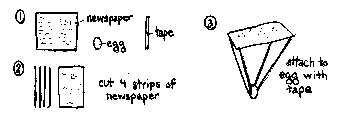 ①
newspaper
egg
tape
②
cut 4 strips of
newspaper
③
attach to
egg with
tape